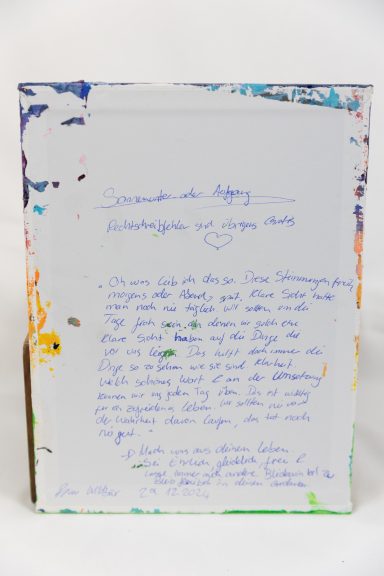 Sonnenunter oder Aufgang
Rechtschreibfehler sind übrigens Gratis
"Oh was lieb ich das so. Diese Stimmungen früh
morgens oder Abend, gut. Klare Sicht hatte
man noch nie täglich. Wir sollten an die
Tage froh sein, an denen wir solch eine
klare Sicht haben auf die Dinge die
vor uns liegen. Das hilft doch immer die
Dinge so zu sehen wie sie sind. Klarheit.
Welch schönes Wort & an der Umsetzung
können wir uns jeden Tag üben. Das ist wichtig
für ein zufriedenes Leben. Wir sollten nie vor
der Wahrheit davon laufen, das tut noch
nie gut."
Mach was aus deinem Leben.
Sei Ehrlich, glücklich, frei &
immer auch andere
in deinen
29.12.2024